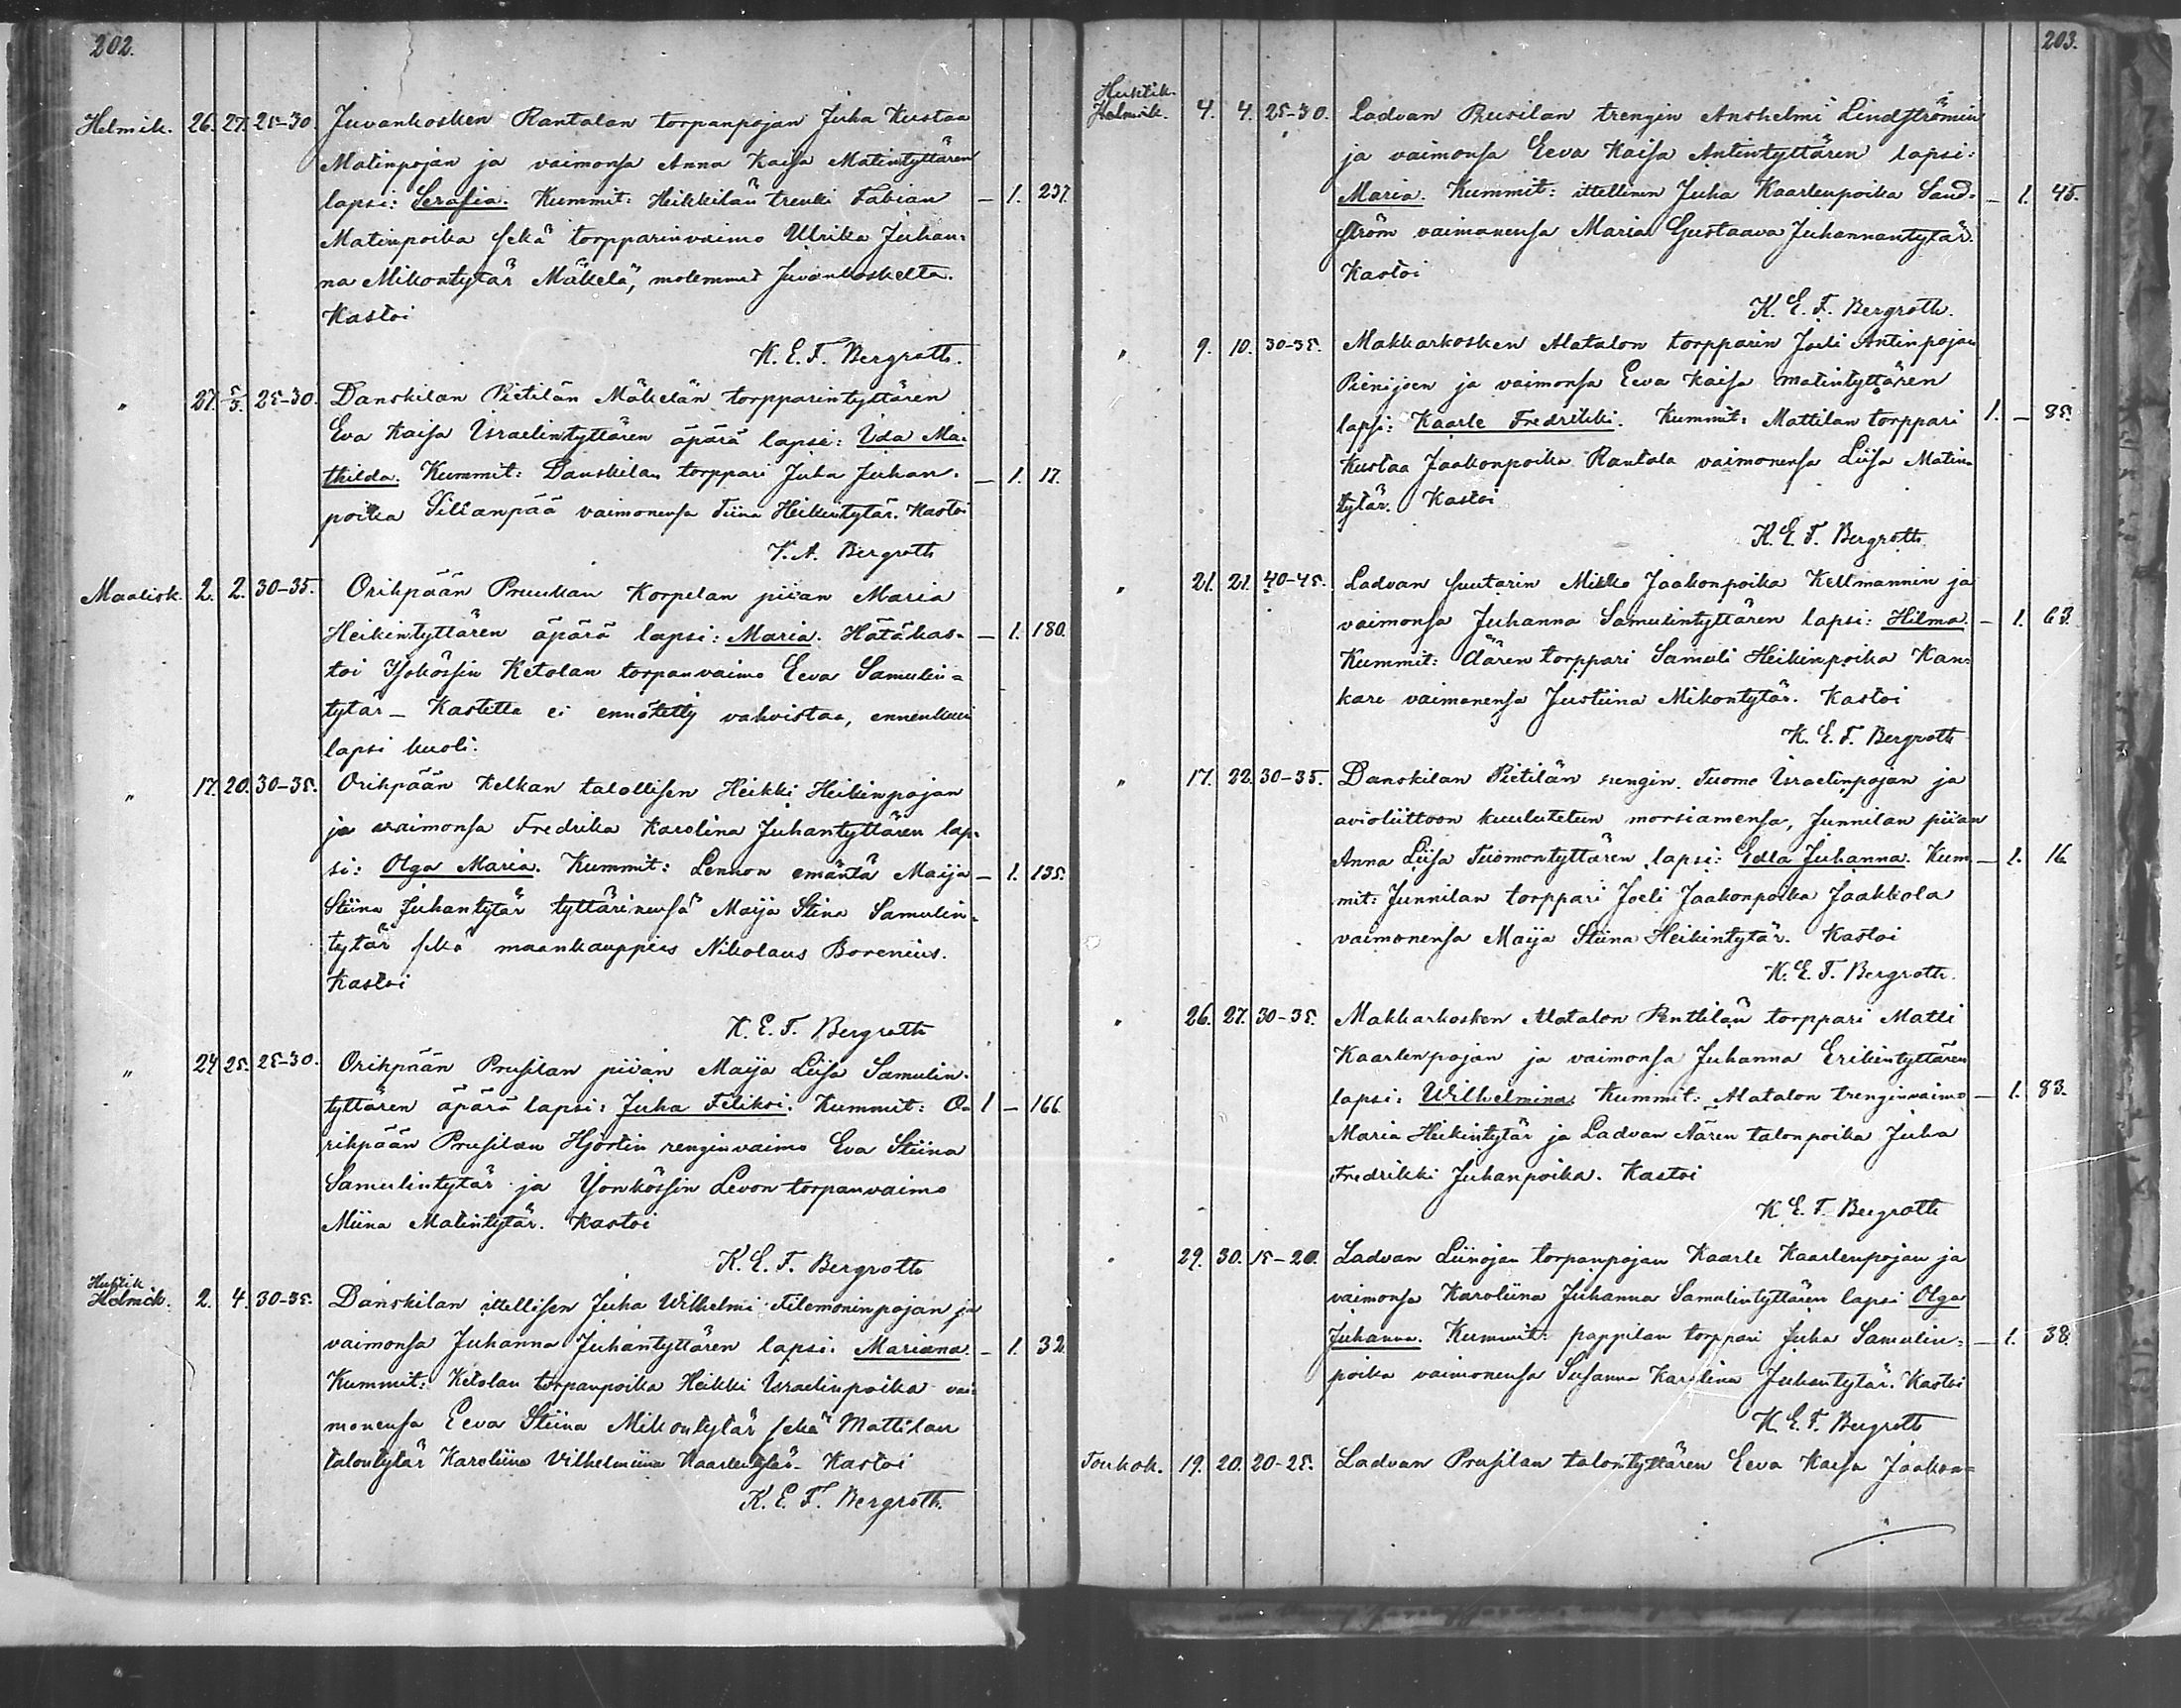 202.
Helmik. 26. 27. 25-30. Juvankosken Rantalan torpanpojan Juha Kustaa
Matinpojan ja vaimonsa Anna Kaisa Matintyttären
lapsi: Serafia. Kummit: Heikkilän trenki Fabian — 1. 237.
Matinpoika sekä torpparinvaimo Ulrika Juhan-
na Mikontytär Mäkelä, molemmat Juvankoskelta.
Kastoi
K. E. F. Bergroth.
" 27. 5/3. 25-30. Danskilan Pietilän Mäkelän torpparintyttären
Eva Kaisa Israelintyttären äpärä lapsi: Ida Ma-
thilda. Kummit: Danskilan torppari Juha Juhan- — 1. 17.
poika Sillanpää vaimonensa Tiina Heikintytär. Kastoi
K. A. Bergroth
Maalisk. 2. 2. 30-35. Orihpään Pruukan Korpelan piian Maria
Heikintyttären äpärä lapsi: Maria. Hätäkas- — 1. 180.
toi Isokössin Ketolan torpanvaimo Eeva Samulin=
tytär — Kastetta ei ennätetty vahvistaa, ennenkuin
lapsi kuoli.
" 17. 20. 30-35. Orihpään Kelkan talollisen Heikki Heikinpojan
ja vaimonsa Fredrika Karolina Juhantyttären lap-
si: Olga Maria. Kummit: Lennon emäntä Maija — 1. 135.
Stiina Juhantytär tyttärinensä Maija Stina Samulin-
tytär sekä maankauppias Nikolaus Borenius.
Kastoi
K. E. F. Bergroth
" 24. 25. 25-30. Orihpään Prusilan piian Maija Liisa Samulin-
tyttären äpärä lapsi: Juha Feliksi. Kummit: O- 1 — 166.
rihpään Prusilan Hjortin renginvaimo Eva Stiina
Samulintytär ja Yonkössin Levon torpanvaimo
Miina Matintytär. Kastoi
K. E. F. Bergroth
Huhtik
Helmik. 2. 4. 30-35. Danskilan ittellisen Juha Wilhelmi Filemoninpojan ja
vaimonsa Juhanna Juhantyttären lapsi: Mariana. — 1. 32.
Kummit: Ketolan torpanpoika Heikki Israelinpoika vai-
monensa Eeva Stiina Mikontytär sekä Mattilan
talontytär Karoliina Vilhelmiina Kaarlentytär. Kastoi
K. E. F. Bergroth.
203.
Huhtik.
Helmik. 4. 4. 25-30. Ladvan Prusilan trengin Anshelmi Lindströmin
ja vaimonsa Eeva Kaisa Antintyttären lapsi:
Maria. Kummit: ittellinen Juha Kaarlenpoika Sand- — 1. 45.
ström vaimonensa Maria Gustaava Juhannantytär.
Kastoi
K. E. F. Bergroth.
" 9. 10. 30-35. Makkarkosken Alatalon torpparin Joeli Antinpojan
Pienijoen ja vaimonsa Eeva Kaisa Matintyttären
lapsi: Kaarle Fredrikki. Kummit: Mattilan torppari 1. — 85.
Kustaa Jaakonpoika Rantala vaimonensa Liisa Matin-
tytär. Kastoi
K. E. F. Bergroth.
" 21. 21. 40-45. Ladvan suutarin Mikko Jaakonpoika Keltmannin ja
vaimonsa Juhanna Samulintyttären lapsi: Hilma. — 1. 63.
Kummit: Aären torppari Samuli Heikinpoika Kan-
kare vaimonensa Justiina Mikontytär. Kastoi
K. E. F. Bergroth
" 17. 22. 30-35. Danskilan Pietilän rengin Tuomo Israelinpojan ja
avioliittoon kuulutetun morsiamensa, Junnilan piian
Anna Liisa Tuomontyttären lapsi: Edla Juhanna. Kum- — 1. 16
mit: Junnilan torppari Joeli Jaakonpoika Jaakkola
vaimonensa Maija Stiina Heikintytär. Kastoi
K. E. F. Bergroth.
" 26. 27. 30-35. Makkarkosken Alatalon Penttilän torppari Matti
Kaarlenpojan ja vaimonsa Juhanna Erikintyttären
lapsi: Wilhelmina. Kummit: Alatalon trenginvaimo — 1. 83.
Maria Heikintytär ja Ladvan Aären talonpoika Juha
Fredrikki Juhanpoika. Kastoi
K. E. F. Bergroth
" 29. 30. 15-20. Ladvan Liinojan torpanpojan Kaarle Kaarlenpojan ja
vaimonsa Karoliina Juhanna Samulintyttären lapsi Olga
Juhanna. Kummit: pappilan torppari Juha Samulin- — 1. 38.
poika vaimonensa Susanna Karolina Juhantytär. Kastoi
K. E. F. Bergroth
Toukok. 19. 20. 20-25. Ladvan Prusilan talontyttären Eeva Kaisa Jaakon=